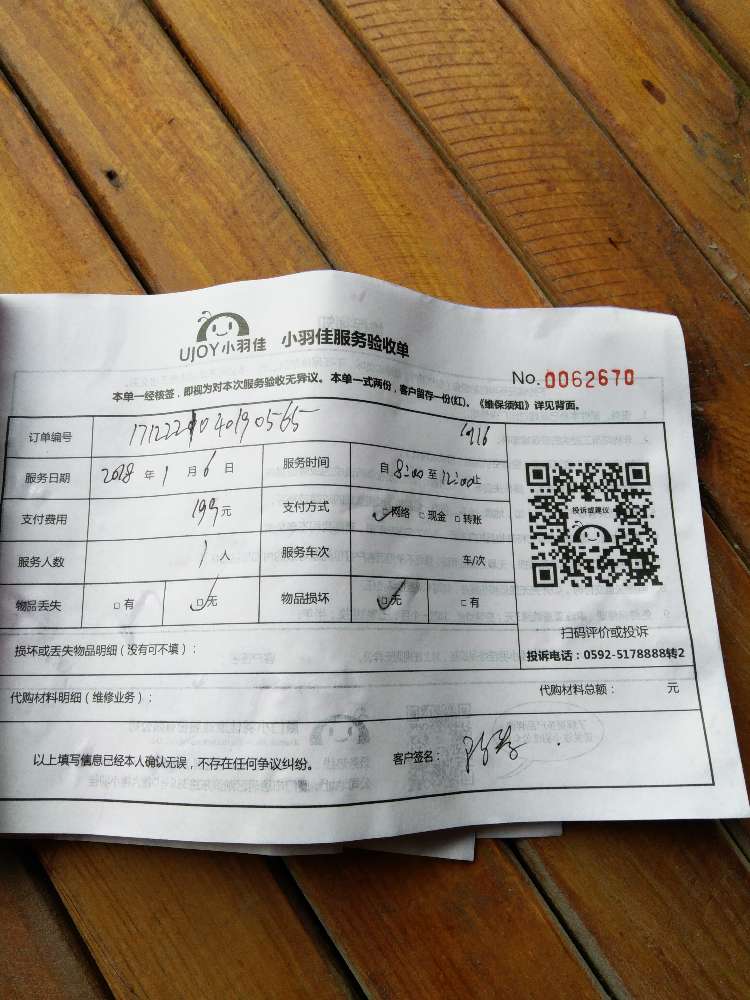 UJOY小羽佳 小羽佳服务验收单
No. 0062670
本单一经核签，即视为对本次服务验收无异议。本单一式两份，客户留存一份(红)。《维保须知》详见背面。
订单编号 1712221040190565
服务日期 2018 年 1 月 6 日 服务时间 自 8:00 至 12:00止
支付费用 199元 支付方式 网络 现金 转账
服务人数 1人 服务车次 车/次
物品丢失 有 无 物品损坏 无 有
投诉或建议
扫码评价或投诉
投诉电话：0592-5178888转2
损坏或丢失物品明细（没有可不填）：
代购材料明细（维修业务）： 代购材料总额： 元
以上填写信息已经本人确认无误，不存在任何争议纠纷。 客户签名：